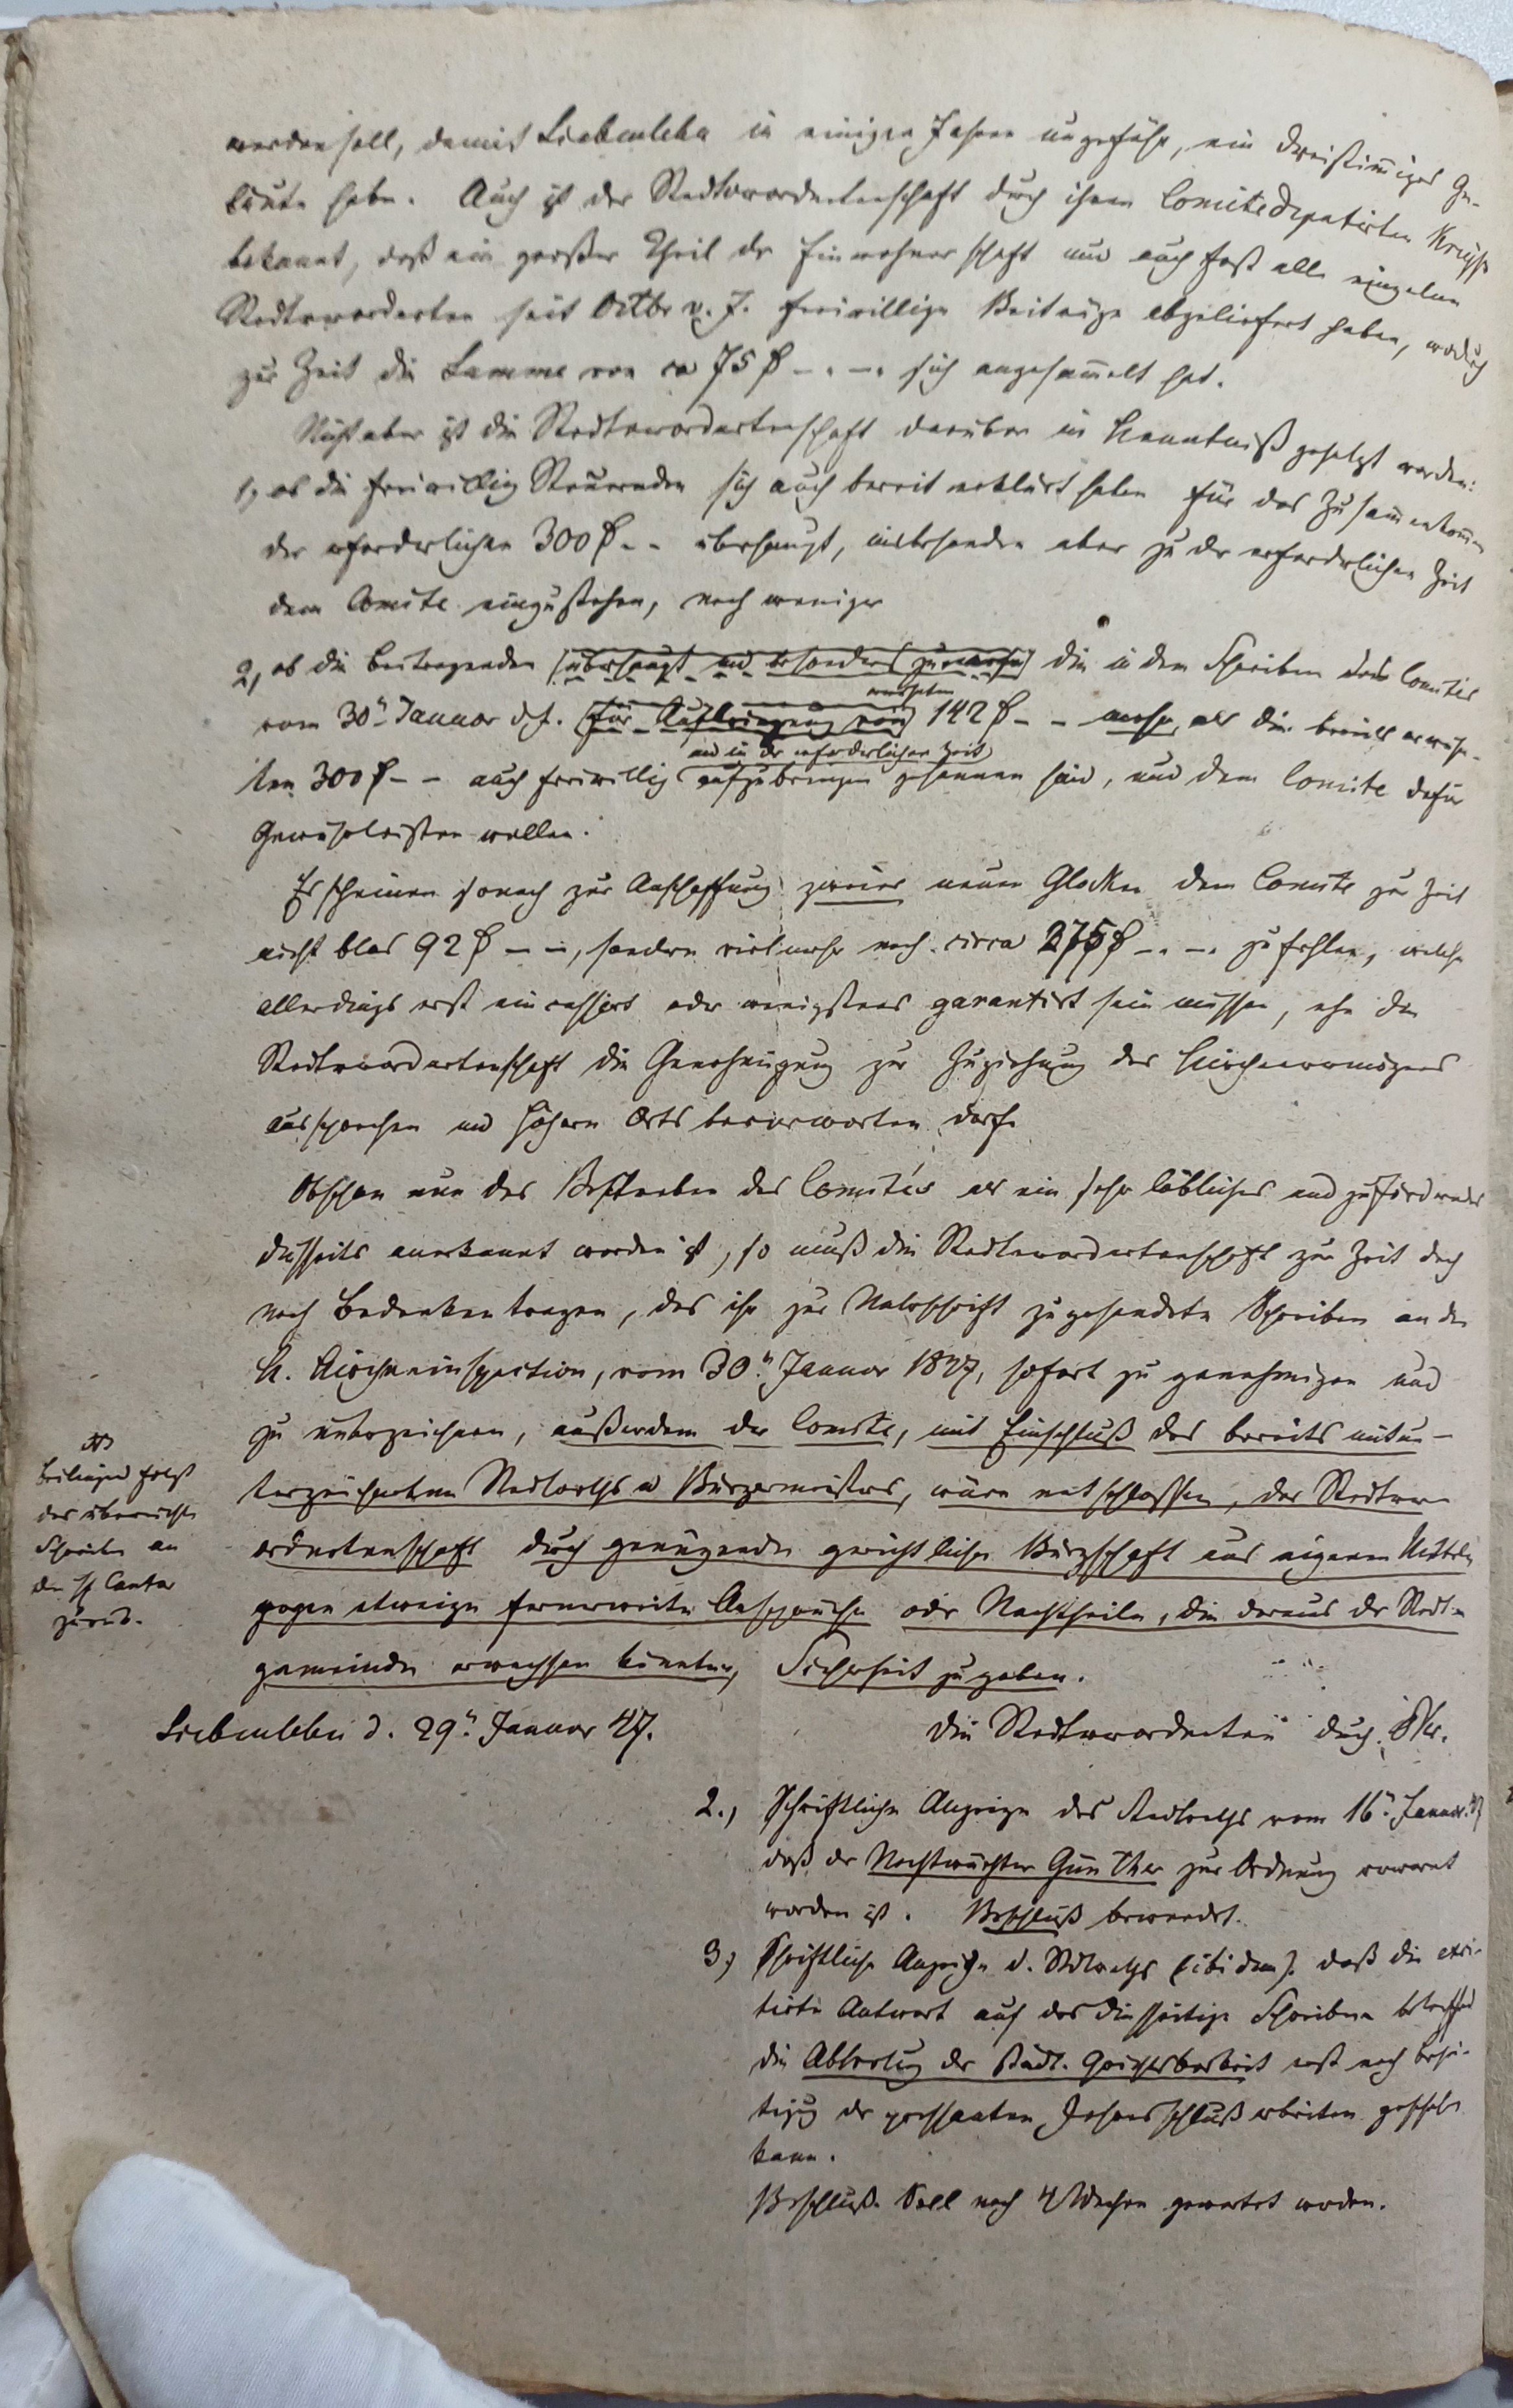 werden soll, damit Siebenlehn in einigen Jahren ungefähr, ein dreistim̄iges Ge-
läute habe. Auch ist der Stadtverordnetenschaft durch ihren Comitédeputirten
bekannt, daß ein großer Theil der Einwohnerschaft und auch fast alle einzelnen
Stadtverordneten seit Octbr v. J. freiwillige Beiträge abgeliefert haben, wodurch
zur Zeit die Summe von ca 75 ₰ -. -. sich angesam̄elt hat.
Nicht aber ist die Stadtverordnetenschaft darüber in Kenntniß gesetzt worden:
1, ob die freiwillig Steuernden sich auch bereit erklärt haben für das Zusam̄enkom̄en
der erforderlichen 300 ₰ - - überhaupt, insbesondere aber zu der erforderlichen Zeit
dem Comité einzustehen, noch weniger
2, ob die Beitragenden (überhaupt und besonders zuvor) die in dem Schreiben des Comités
vom 30n Januar d. J. (für Aufbringung von) erwähnten 142 ₰ - - mehr, als die bereits erwähn-
ten 300 ₰ - - auch freiwillig und in der erforderlichen Zeit aufzubringen gesonnen sind, und dem Comité dafür
Gewähr leisten wollen.
Es scheinen sonach zur Anschaffung zweier neuen Glocken dem Comité zur Zeit
nicht blos 92 ₰ - -, sondern vielmehr noch circa 275 ₰ -. -. zu fehlen, welche
allerdings erst eincassirt oder wenigstens garantirt sein müssen, ehe die
Stadtverordnetenschaft die Genehmigung zur Zuziehung des Kirchenvermögens
aussprechen und höhern Orts bevorworten darf.
Obschon nun das Bestreben des Comités als ein sehr löbliches und zu förderndes
diesseits anerkannt worden ist, so muß die Stadtverordnetenschaft zur Zeit doch
noch Bedenken tragen, das ihr zur Unterschrift zugesendete Schreiben an die
K. Kircheninspection, vom 30n Januar 1847, sofort zu genehmigen und
zu unterzeichnen, außerdem der Comité, mit Einschluß des bereits mitun-
terzeichneten Stadtraths u Bürgermeisters, wäre entschlossen, der Stadtver-
ordnetenschaft durch genügende gerichtliche Bürgschaft aus eigenen Mitteln
gegen etwaige fernerweite Ansprüche oder Nachtheile, die daraus der Stadt-
gemeinde erwachsen könnten, Sicherheit zu geben.
Beiliegend folgt
das übersendete
Schreiben an
den H Cantor
zurück.
Siebenlehn d. 29n Januar 47.
Die Stadtverordneten durch
2., Schriftliche Anzeige des Stadtraths vom 16n Januar 47
daß der Nachtwächter Günther zur Ordnung verwarnt
worden ist. Beschluß bewendet.
3, Schriftliche Anzeige d. Stdtraths (ibidem). daß die
Antwort auf das diesseitige Schreiben betreffend
die Abtretung der städt. Gerichtsbarkeit erst nach Besei-
tigug der pressanten Jahresschlußarbeiten geschehn
kann.
Beschluß. Soll noch 4 Wochen gewartet werden.